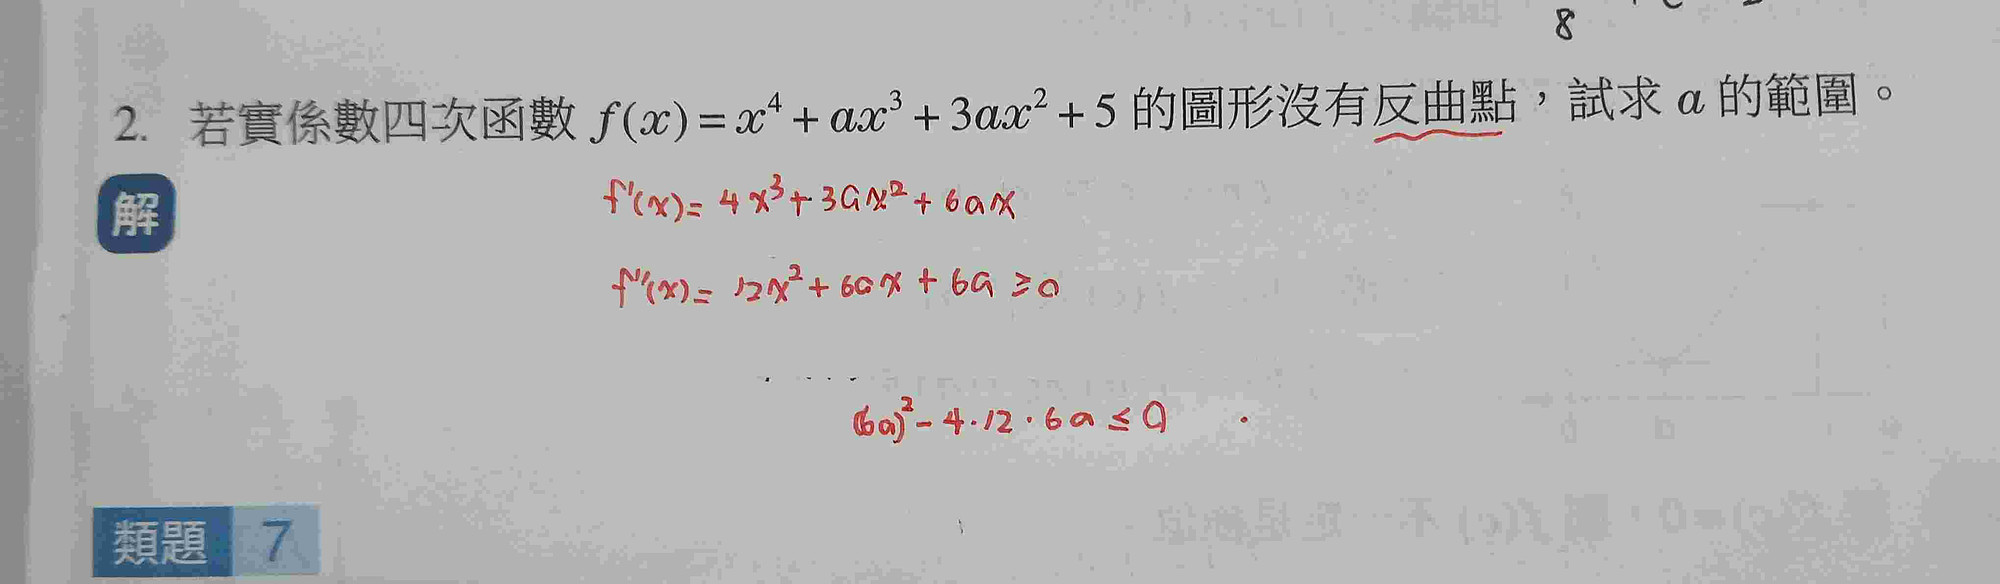 8
2. 若實係數四次函數 f(x) = x⁴ + ax³ + 3ax² + 5 的圖形沒有反曲點，試求 a 的範圍。
解
f'(x) = 4x³ + 3ax² + 6ax
f''(x) = 12x² + 6ax + 6a ≥ 0
(6a)² - 4·12·6a ≤ 0
類題 7